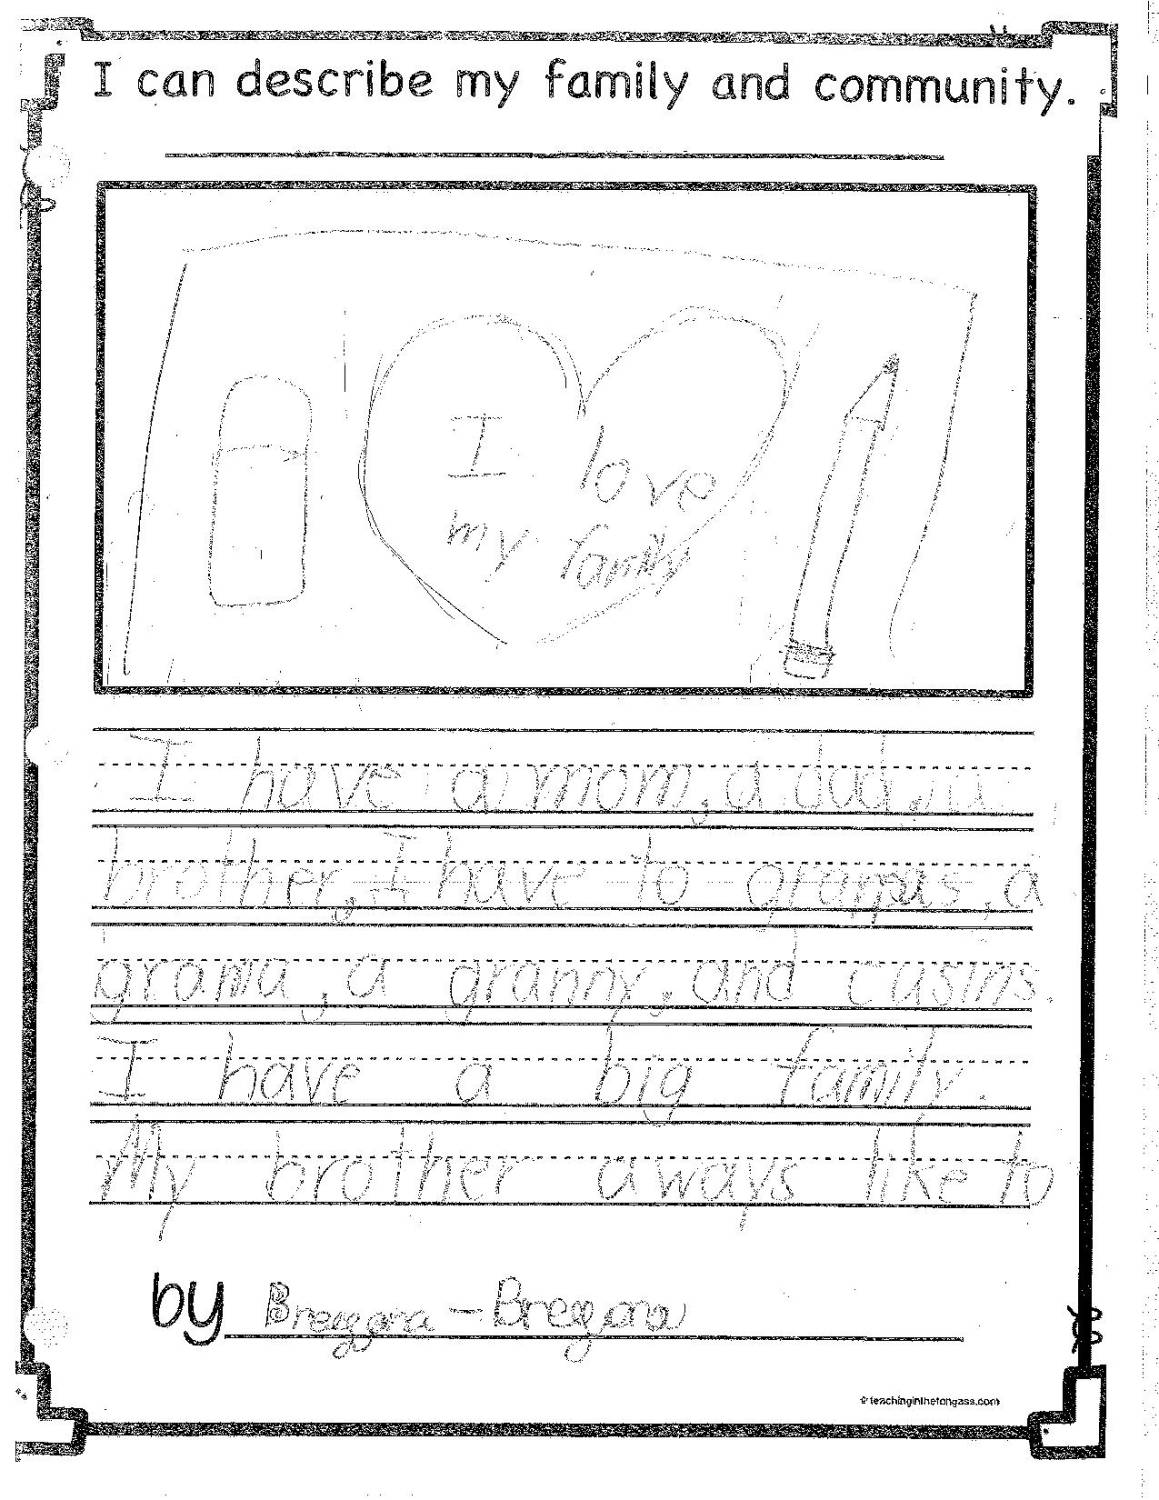 I can describe my family and community.
I love
my family
I have a mom, a dad, a
brother, I have to grampas, a
grama, a granny, and cusins.
I have a big family.
My brother aways like to
by
© teachinginthetongass.com